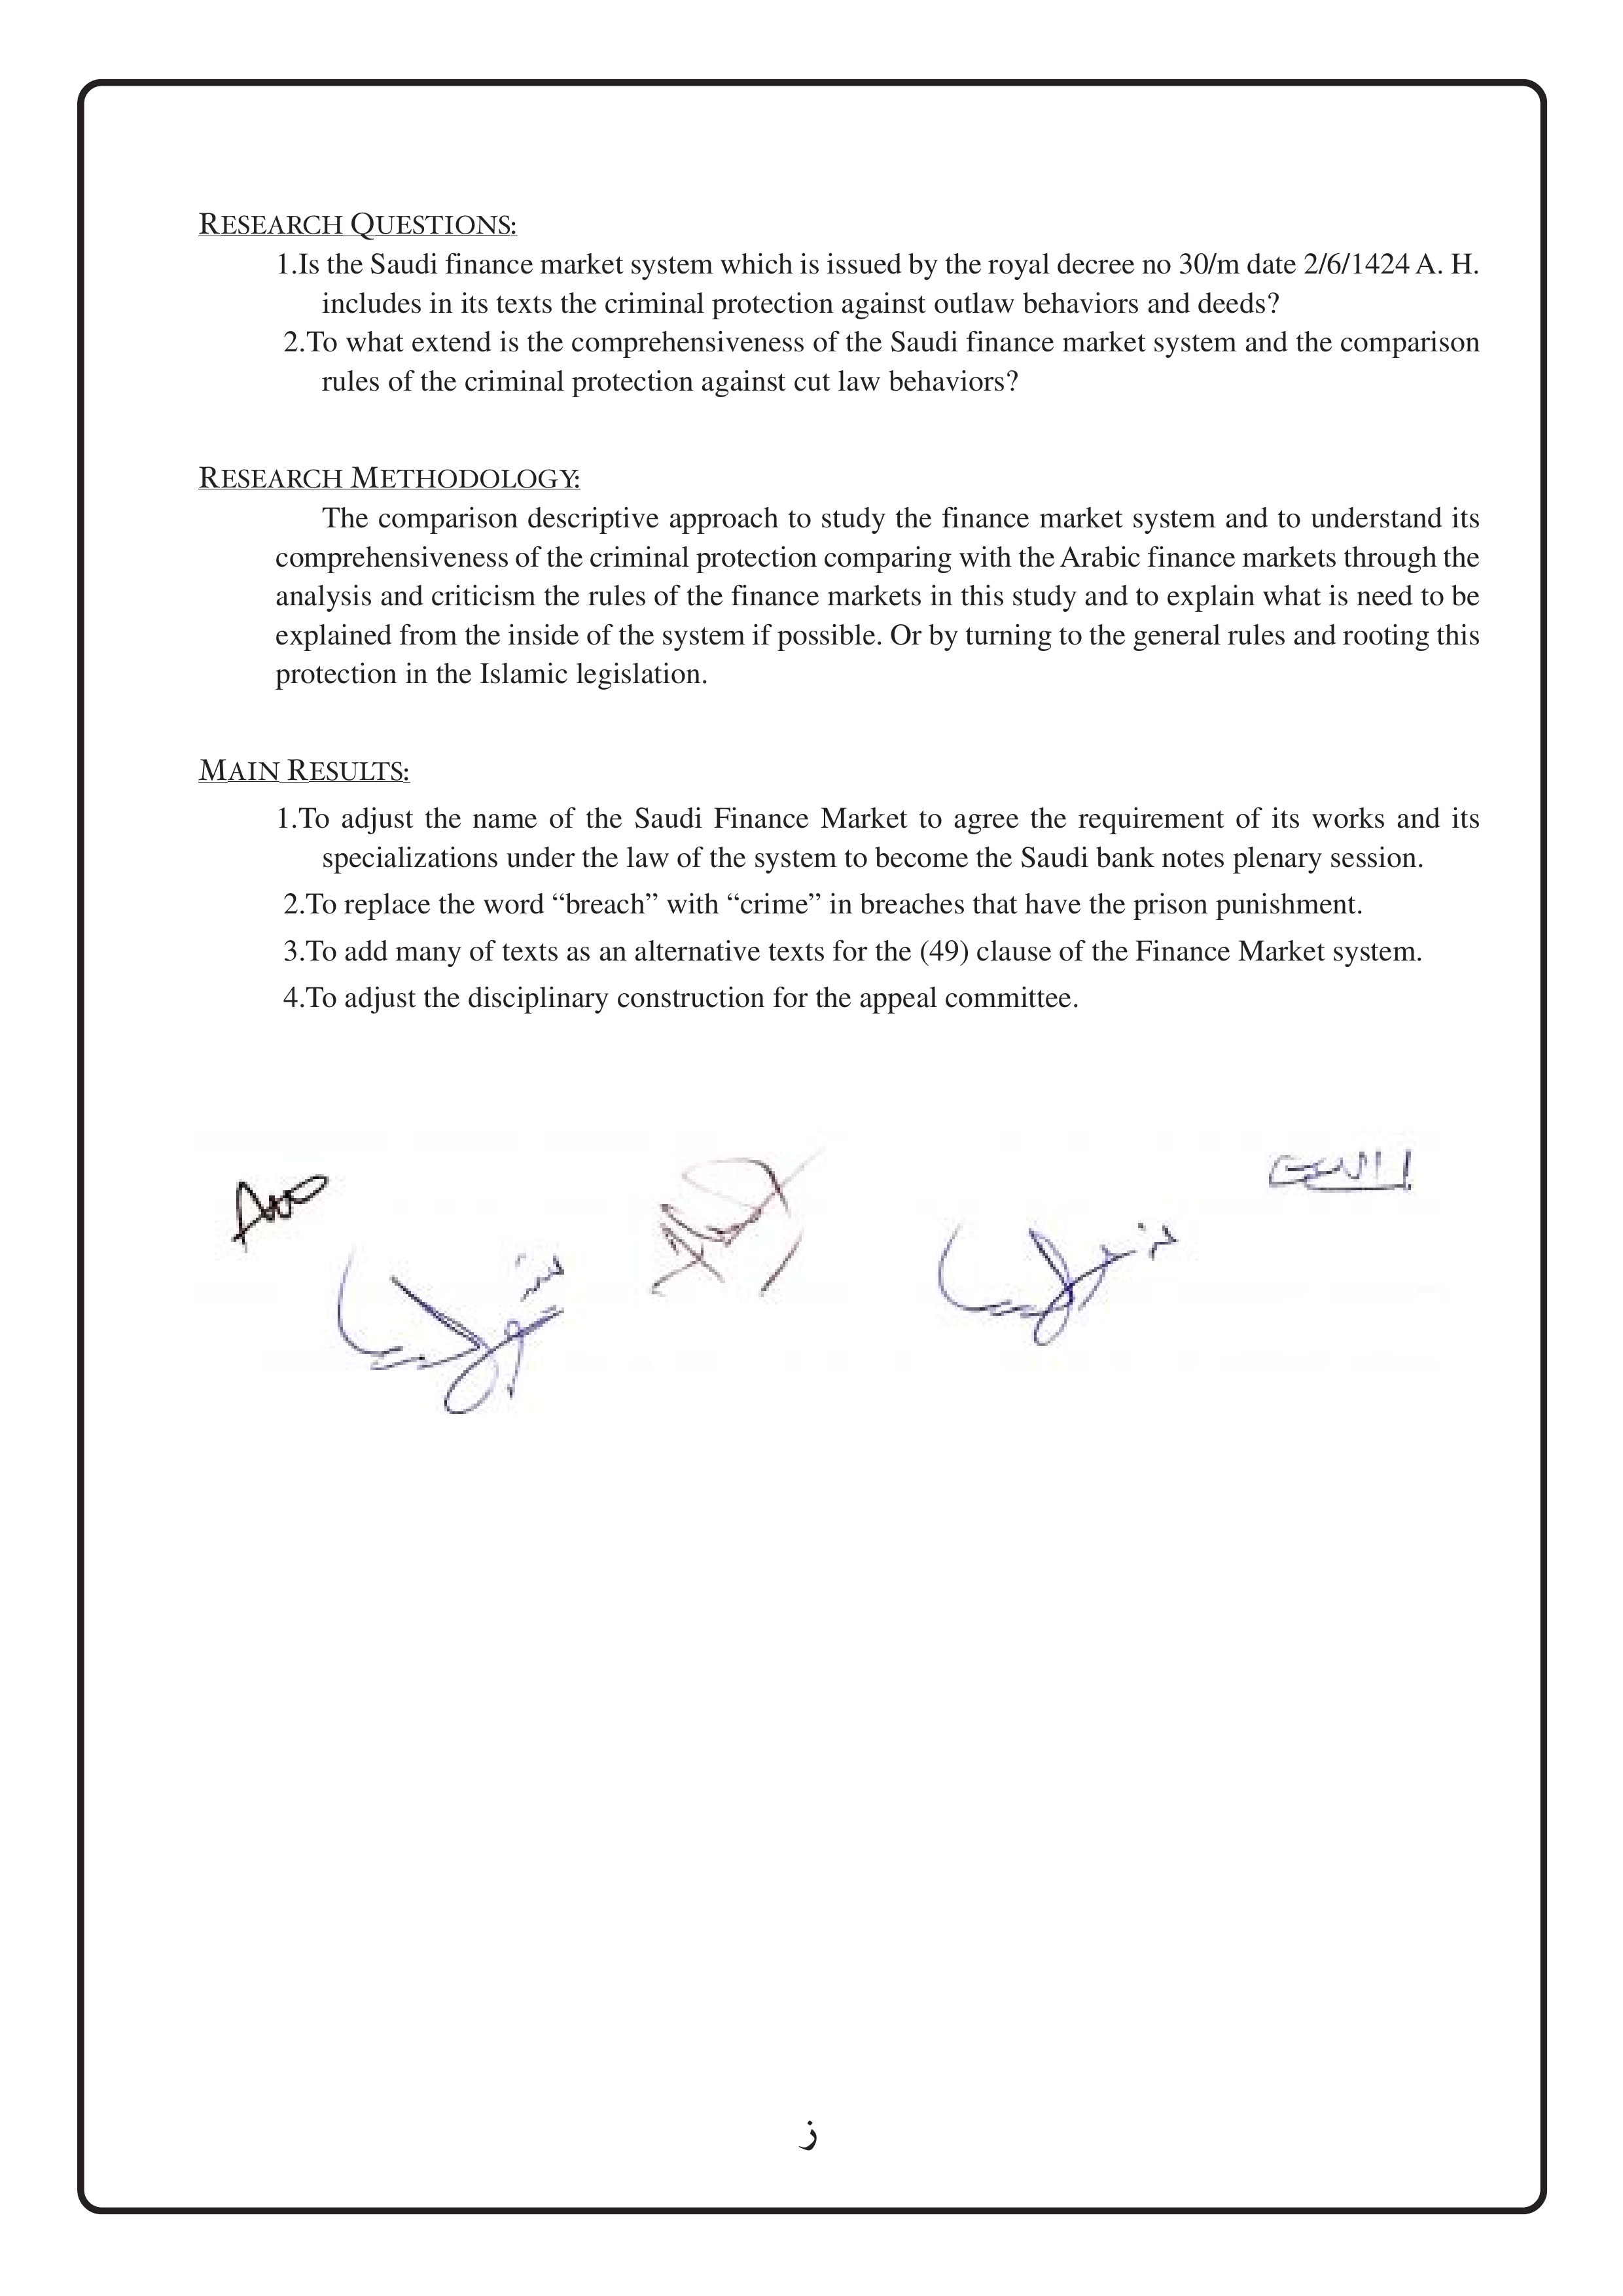 RESEARCH QUESTIONS:
1.Is the Saudi finance market system which is issued by the royal decree no 30/m date 2/6/1424 A. H.
includes in its texts the criminal protection against outlaw behaviors and deeds?
2.To what extend is the comprehensiveness of the Saudi finance market system and the comparison
rules of the criminal protection against cut law behaviors?
RESEARCH METHODOLOGY:
The comparison descriptive approach to study the finance market system and to understand its
comprehensiveness of the criminal protection comparing with the Arabic finance markets through the
analysis and criticism the rules of the finance markets in this study and to explain what is need to be
explained from the inside of the system if possible. Or by turning to the general rules and rooting this
protection in the Islamic legislation.
MAIN RESULTS:
1.To adjust the name of the Saudi Finance Market to agree the requirement of its works and its
specializations under the law of the system to become the Saudi bank notes plenary session.
2.To replace the word “breach” with “crime” in breaches that have the prison punishment.
3.To add many of texts as an alternative texts for the (49) clause of the Finance Market system.
4.To adjust the disciplinary construction for the appeal committee.
ز